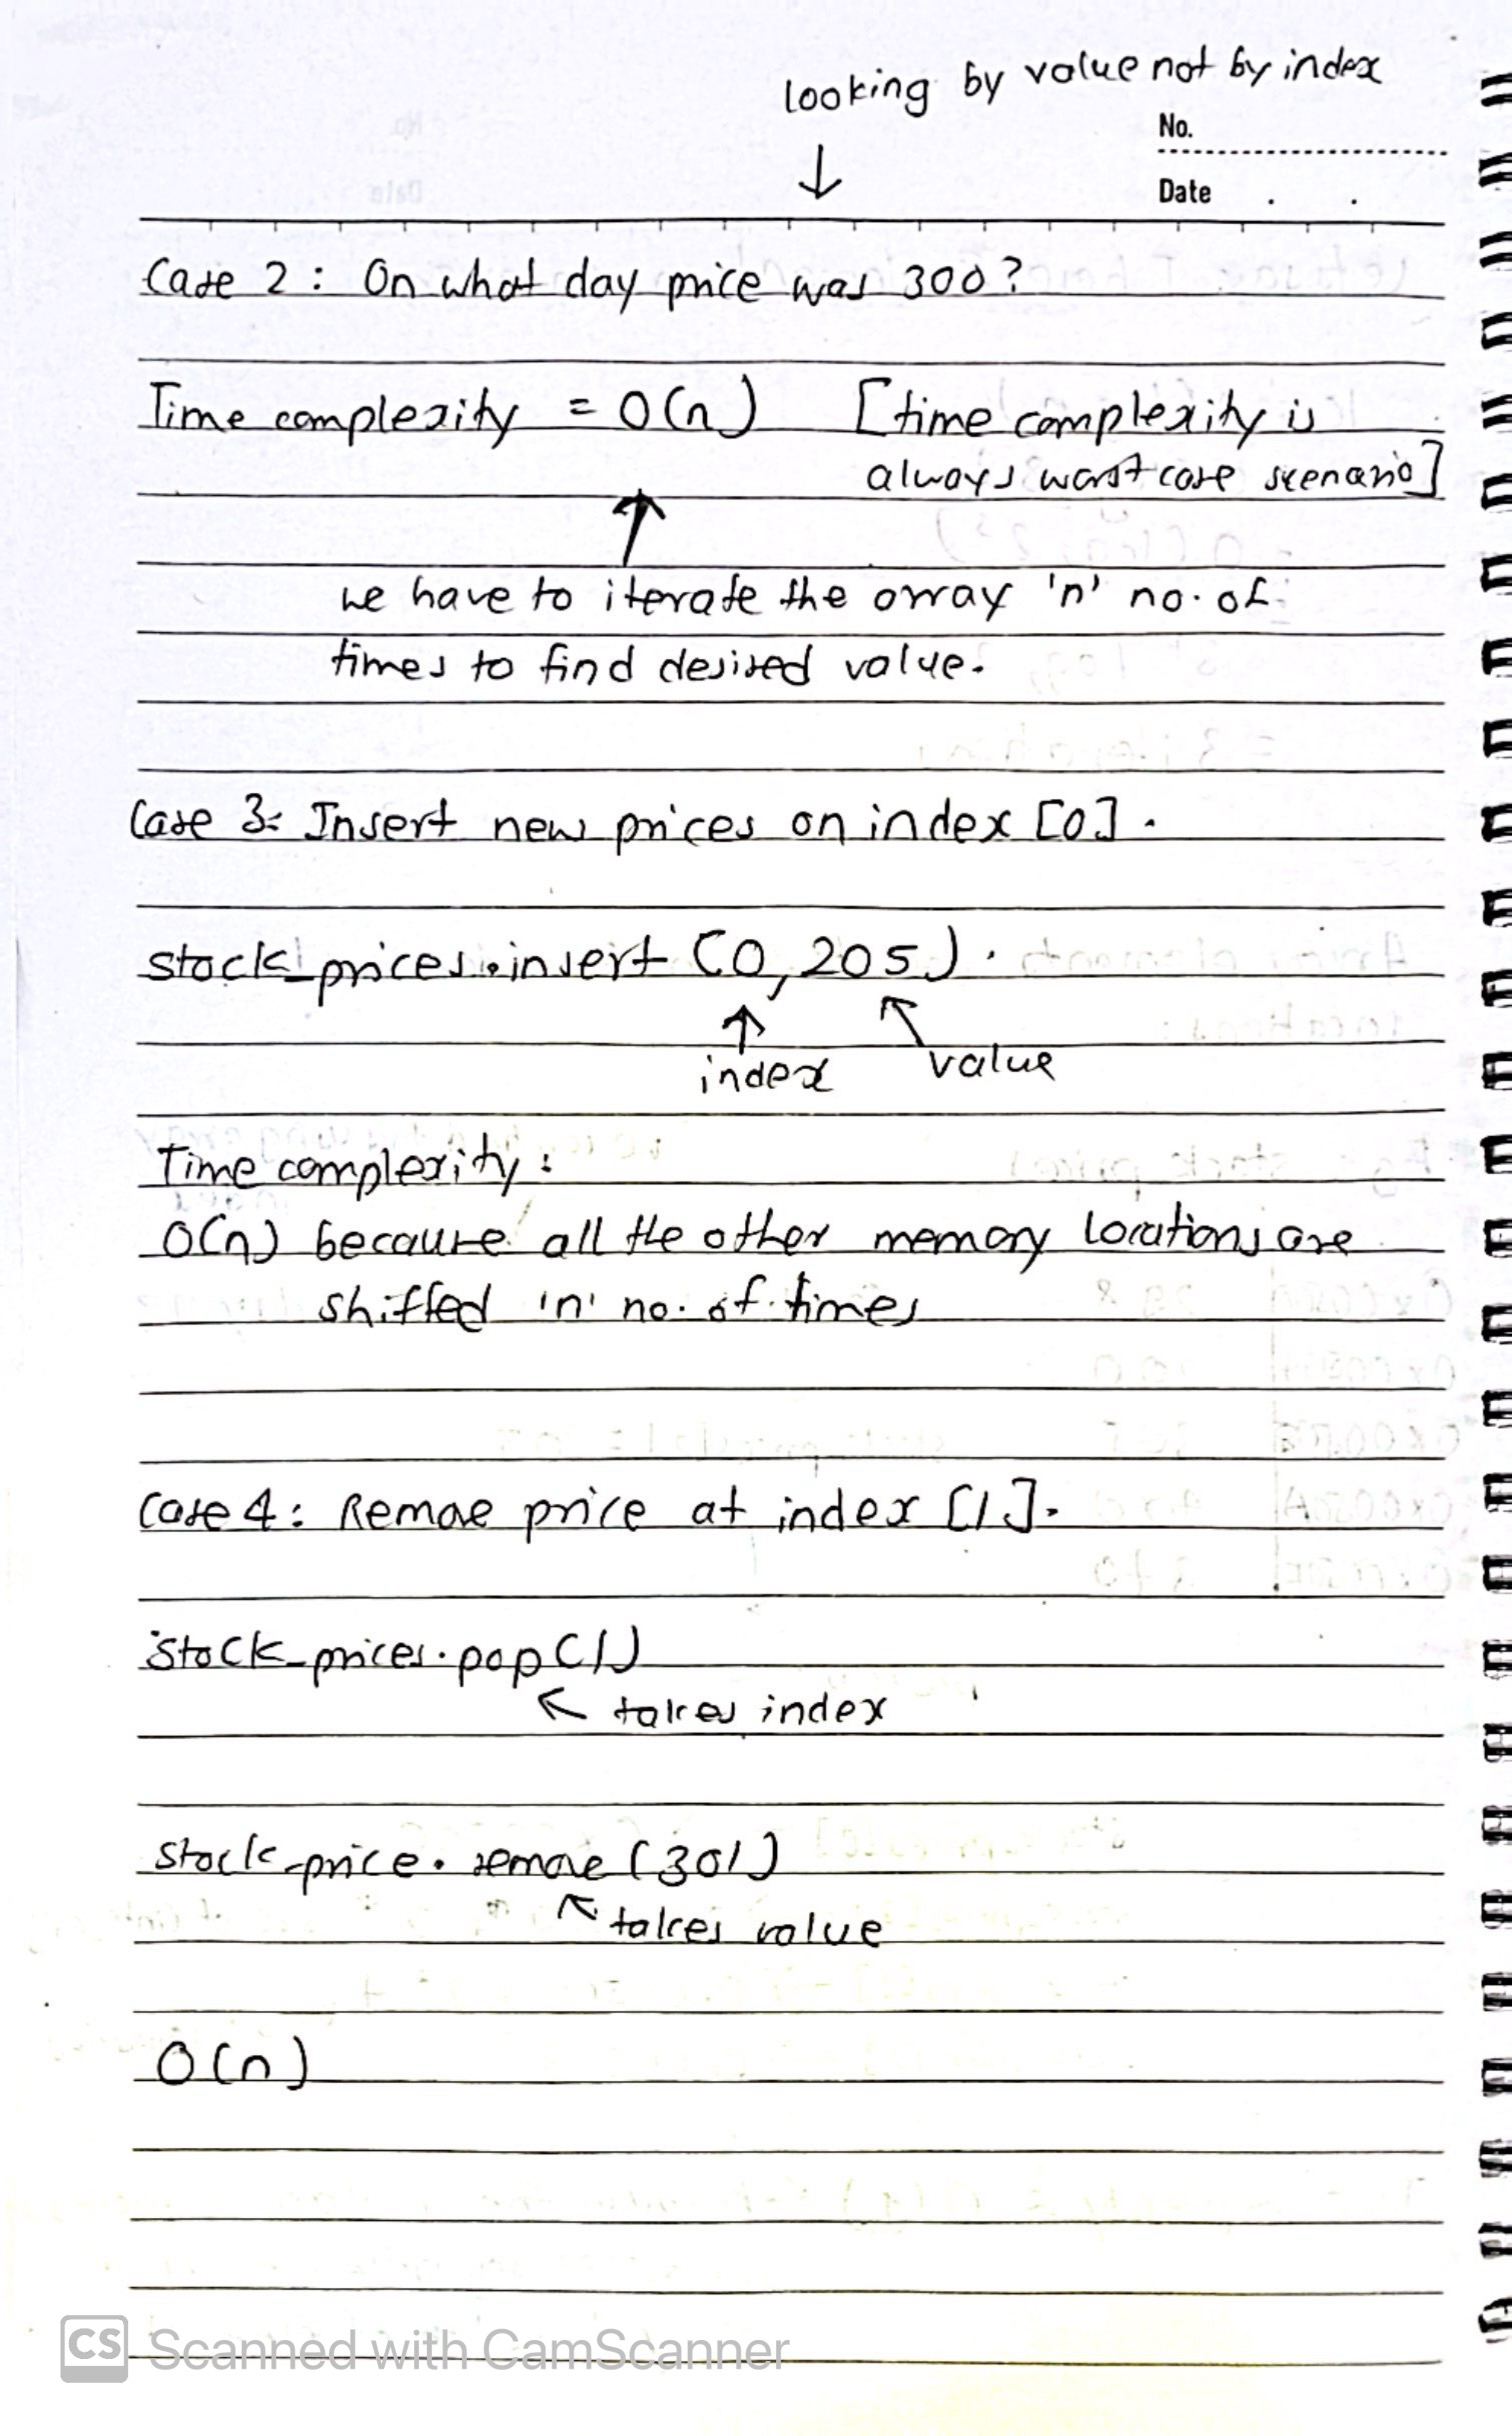 looking by value not by index
No.
Date . .
↓
Case 2 : On what day price was 300?
Time complexity = O(n) [time complexity is
always worst case scenario]
↑
we have to iterate the array 'n' no. of
times to find desired value.
Case 3: Insert new prices on index [0].
stock_prices.insert (0, 205).
↑ ↖
index value
Time complexity :
O(n) because all the other memory locations are
shifted 'n' no. of times
Case 4 : Remove price at index [1].
stock_prices.pop(1)
↖ takes index
stock_price.remove (301)
↖ takes value
O(n)
CS Scanned with CamScanner